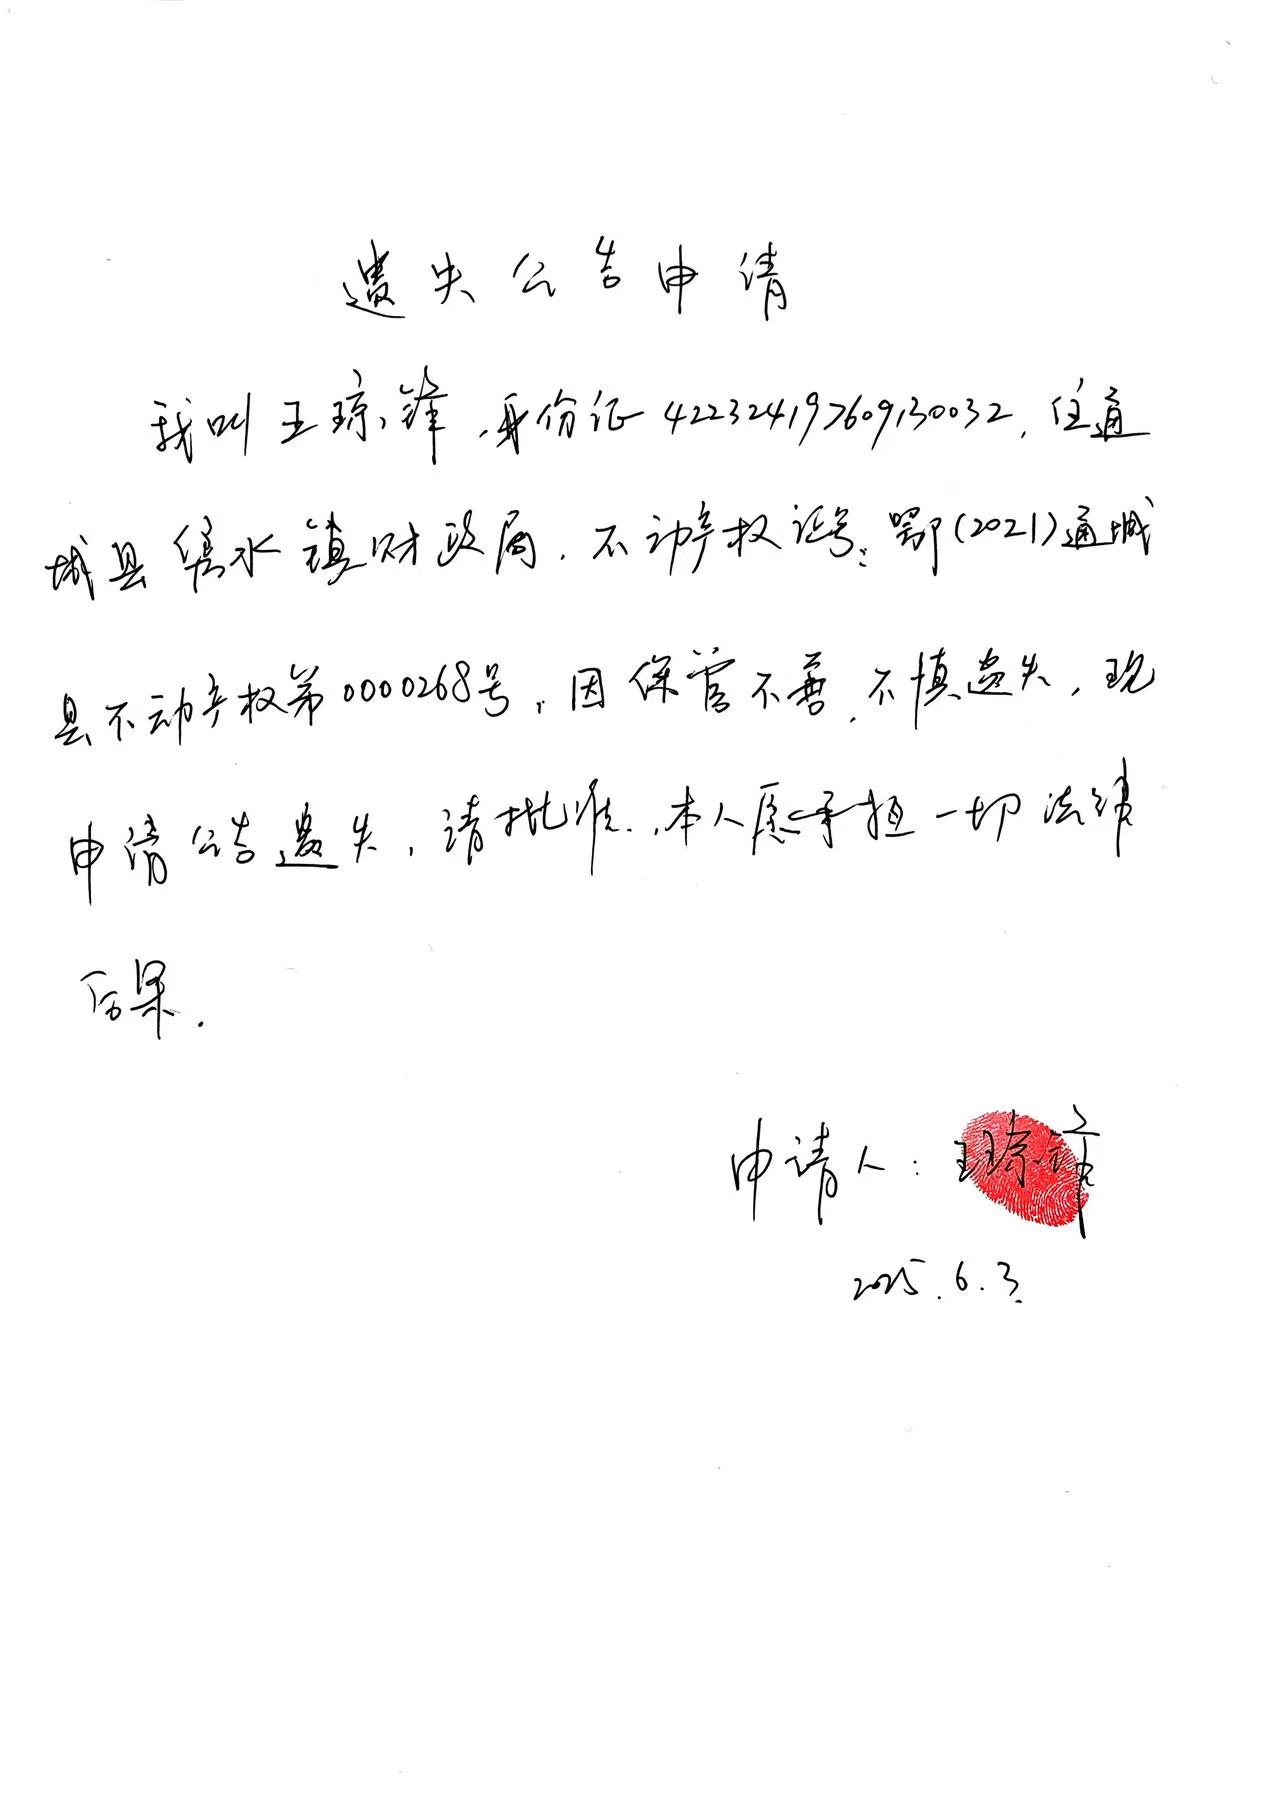 遗失公告申请
我叫王琼锋,身份证422324197609130032,住通
城县隽水镇财政局,不动产权证号:鄂(2021)通城
县不动产权第0000268号,因保管不善,不慎遗失,现
申请公告遗失,请批准,本人愿承担一切法律
后果.
申请人:王琼锋
2025.6.3.